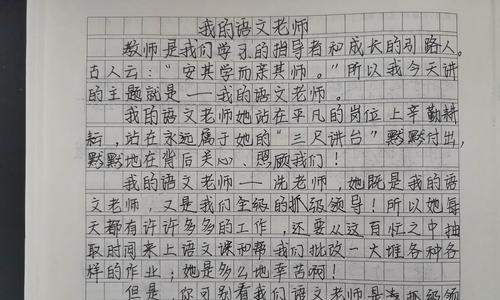 我的语文老师
教师是我们学习的指导者和成长的引路人。
古人云：“安其学而亲其师。”所以我今天讲
的主题就是——我的语文老师。
我的语文老师她站在平凡的岗位上辛勤耕
耘，站在永远属于她的“三尺讲台”默默付出，
默默地在背后关心、照顾我们！
我的语文老师——冼老师，她既是我的语
文老师，又是我们全级的抓级领导！所以她每
天都有许许多多的工作，还要从这百忙之中抽
取时间来上语文课和帮我们批改一大堆各种各
样的作业；她是多么地辛苦啊！
但是，你可别看我们语文老师是抓级领